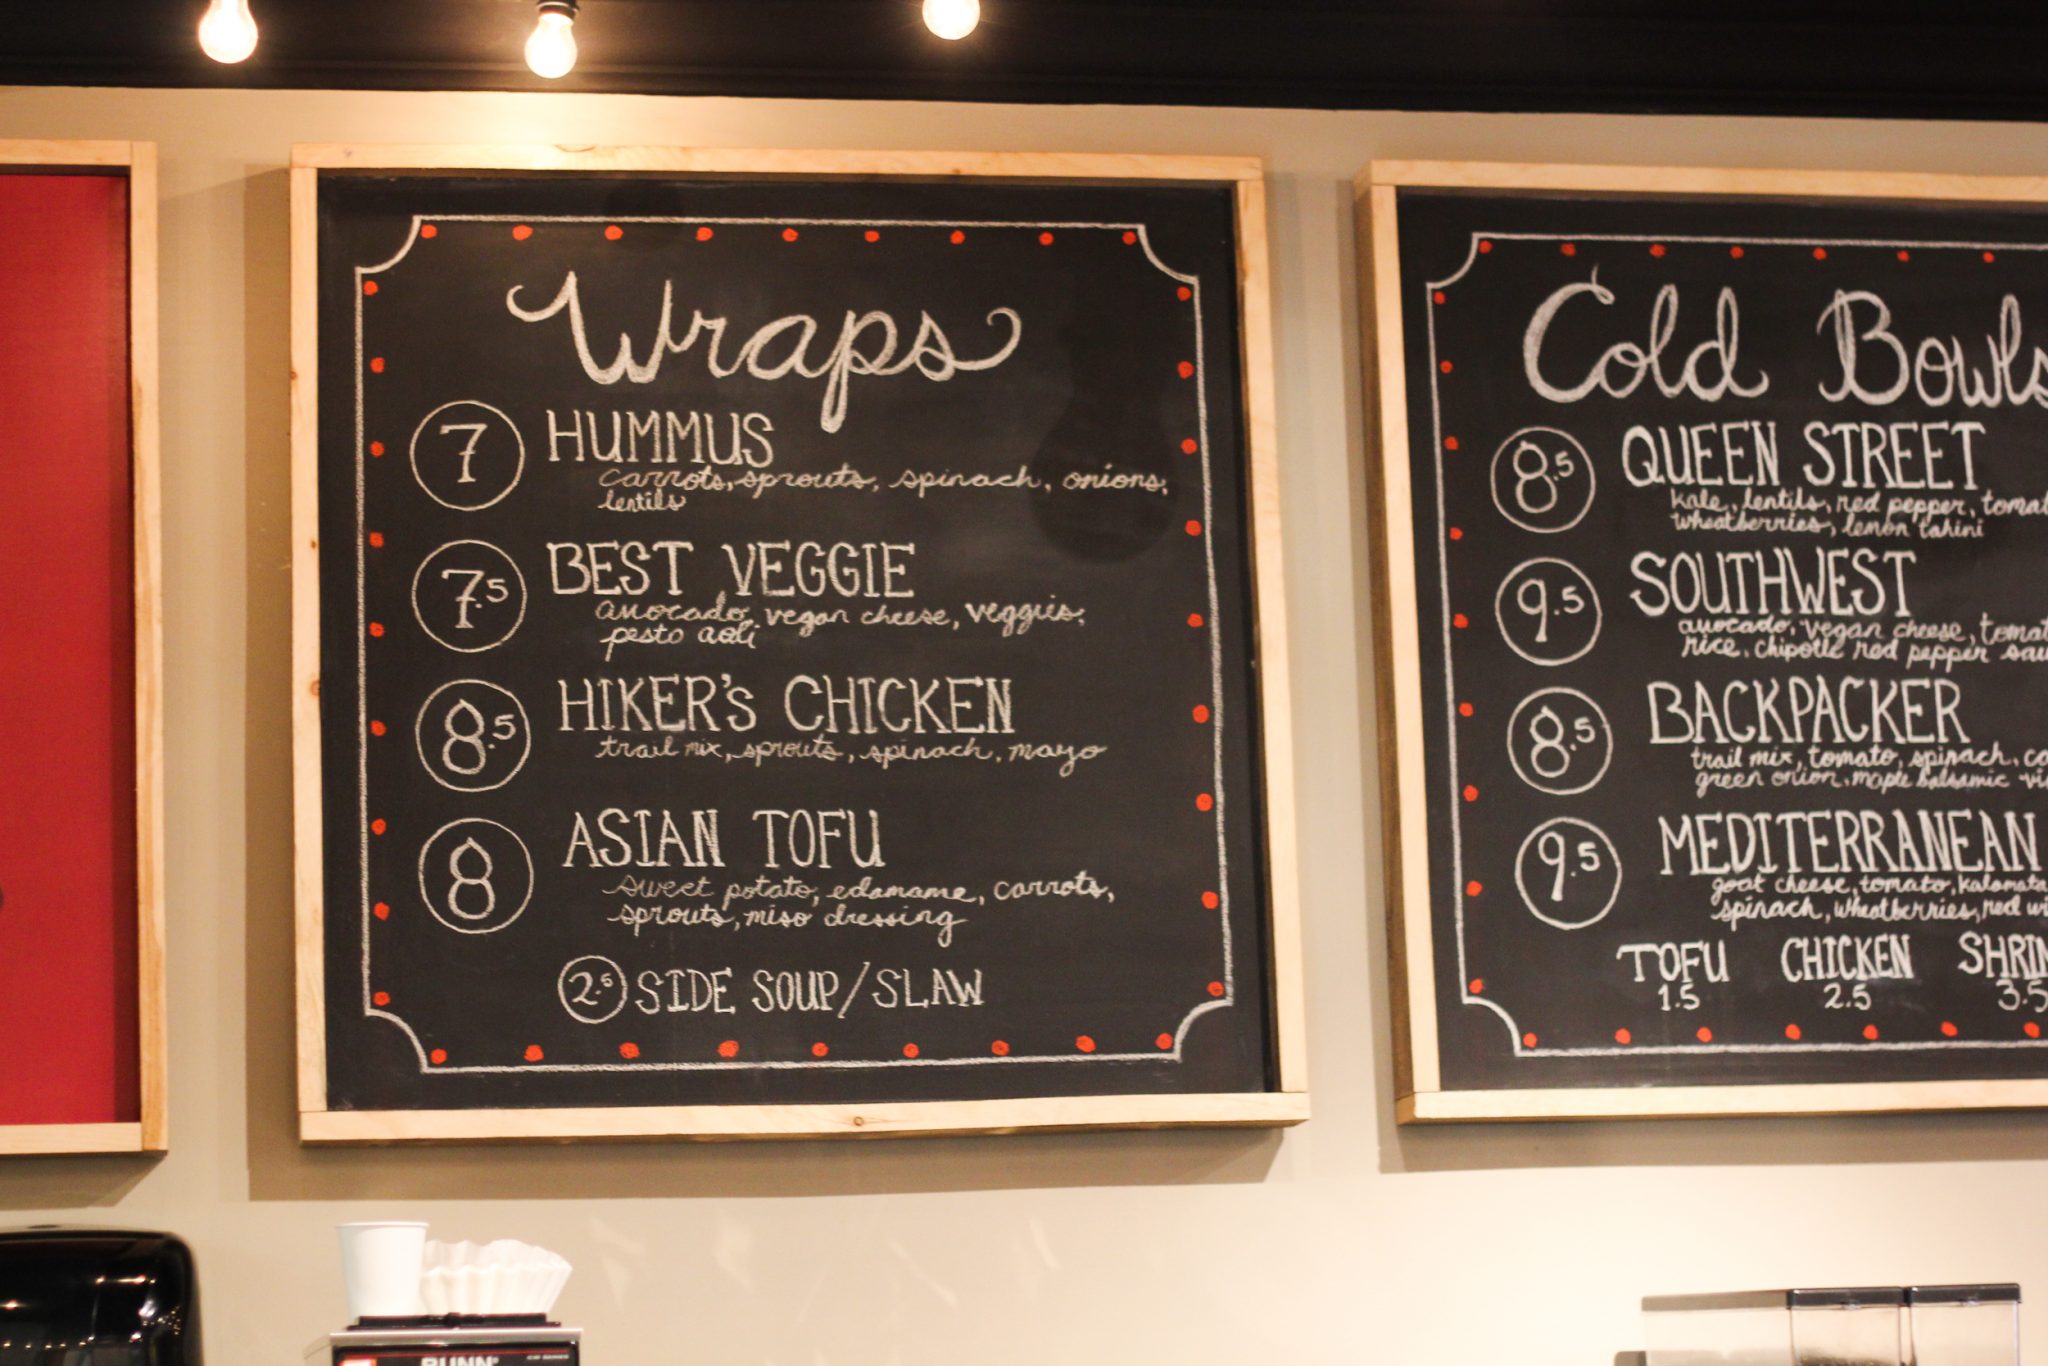 Wraps
7 HUMMUS
carrots, sprouts, spinach, onions,
lentils
7.5 BEST VEGGIE
avocado, vegan cheese, veggies,
pesto aoli
8.5 HIKER'S CHICKEN
trail mix, sprouts, spinach, mayo
8 ASIAN TOFU
sweet potato, edamame, carrots,
sprouts, miso dressing
2.5 SIDE SOUP/SLAW
Cold Bowls
8.5 QUEEN STREET
kale, lentils, red pepper, tomat
wheatberries, lemon tahini
9.5 SOUTHWEST
avocado, vegan cheese, tomat
rice, chipotle red pepper sau
8.5 BACKPACKER
trail mix, tomato, spinach, co
green onion, maple balsamic vi
9.5 MEDITERRANEAN
goat cheese, tomato, kalamata
spinach, wheatberries, red wi
TOFU CHICKEN SHRIM
1.5 2.5 3.5
BUNN